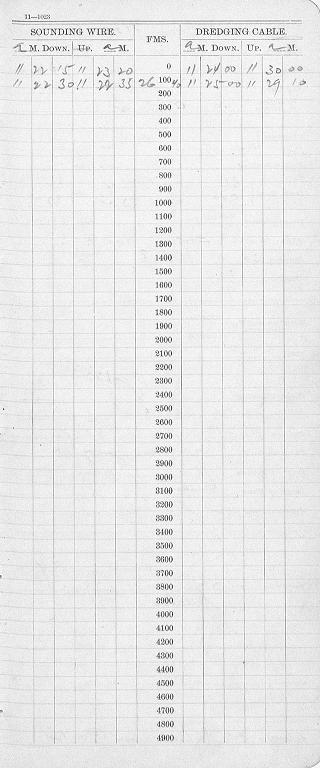 11—1023
SOUNDING WIRE. FMS. DREDGING CABLE.
a M. DOWN. UP. a M. a M. DOWN. UP. a M.
11 22 15 11 23 20 0 11 24 00 11 30 00
11 22 30 11 22 35 26 100 11 25 00 11 29 10
200
300
400
500
600
700
800
900
1000
1100
1200
1300
1400
1500
1600
1700
1800
1900
2000
2100
2200
2300
2400
2500
2600
2700
2800
2900
3000
3100
3200
3300
3400
3500
3600
3700
3800
3900
4000
4100
4200
4300
4400
4500
4600
4700
4800
4900